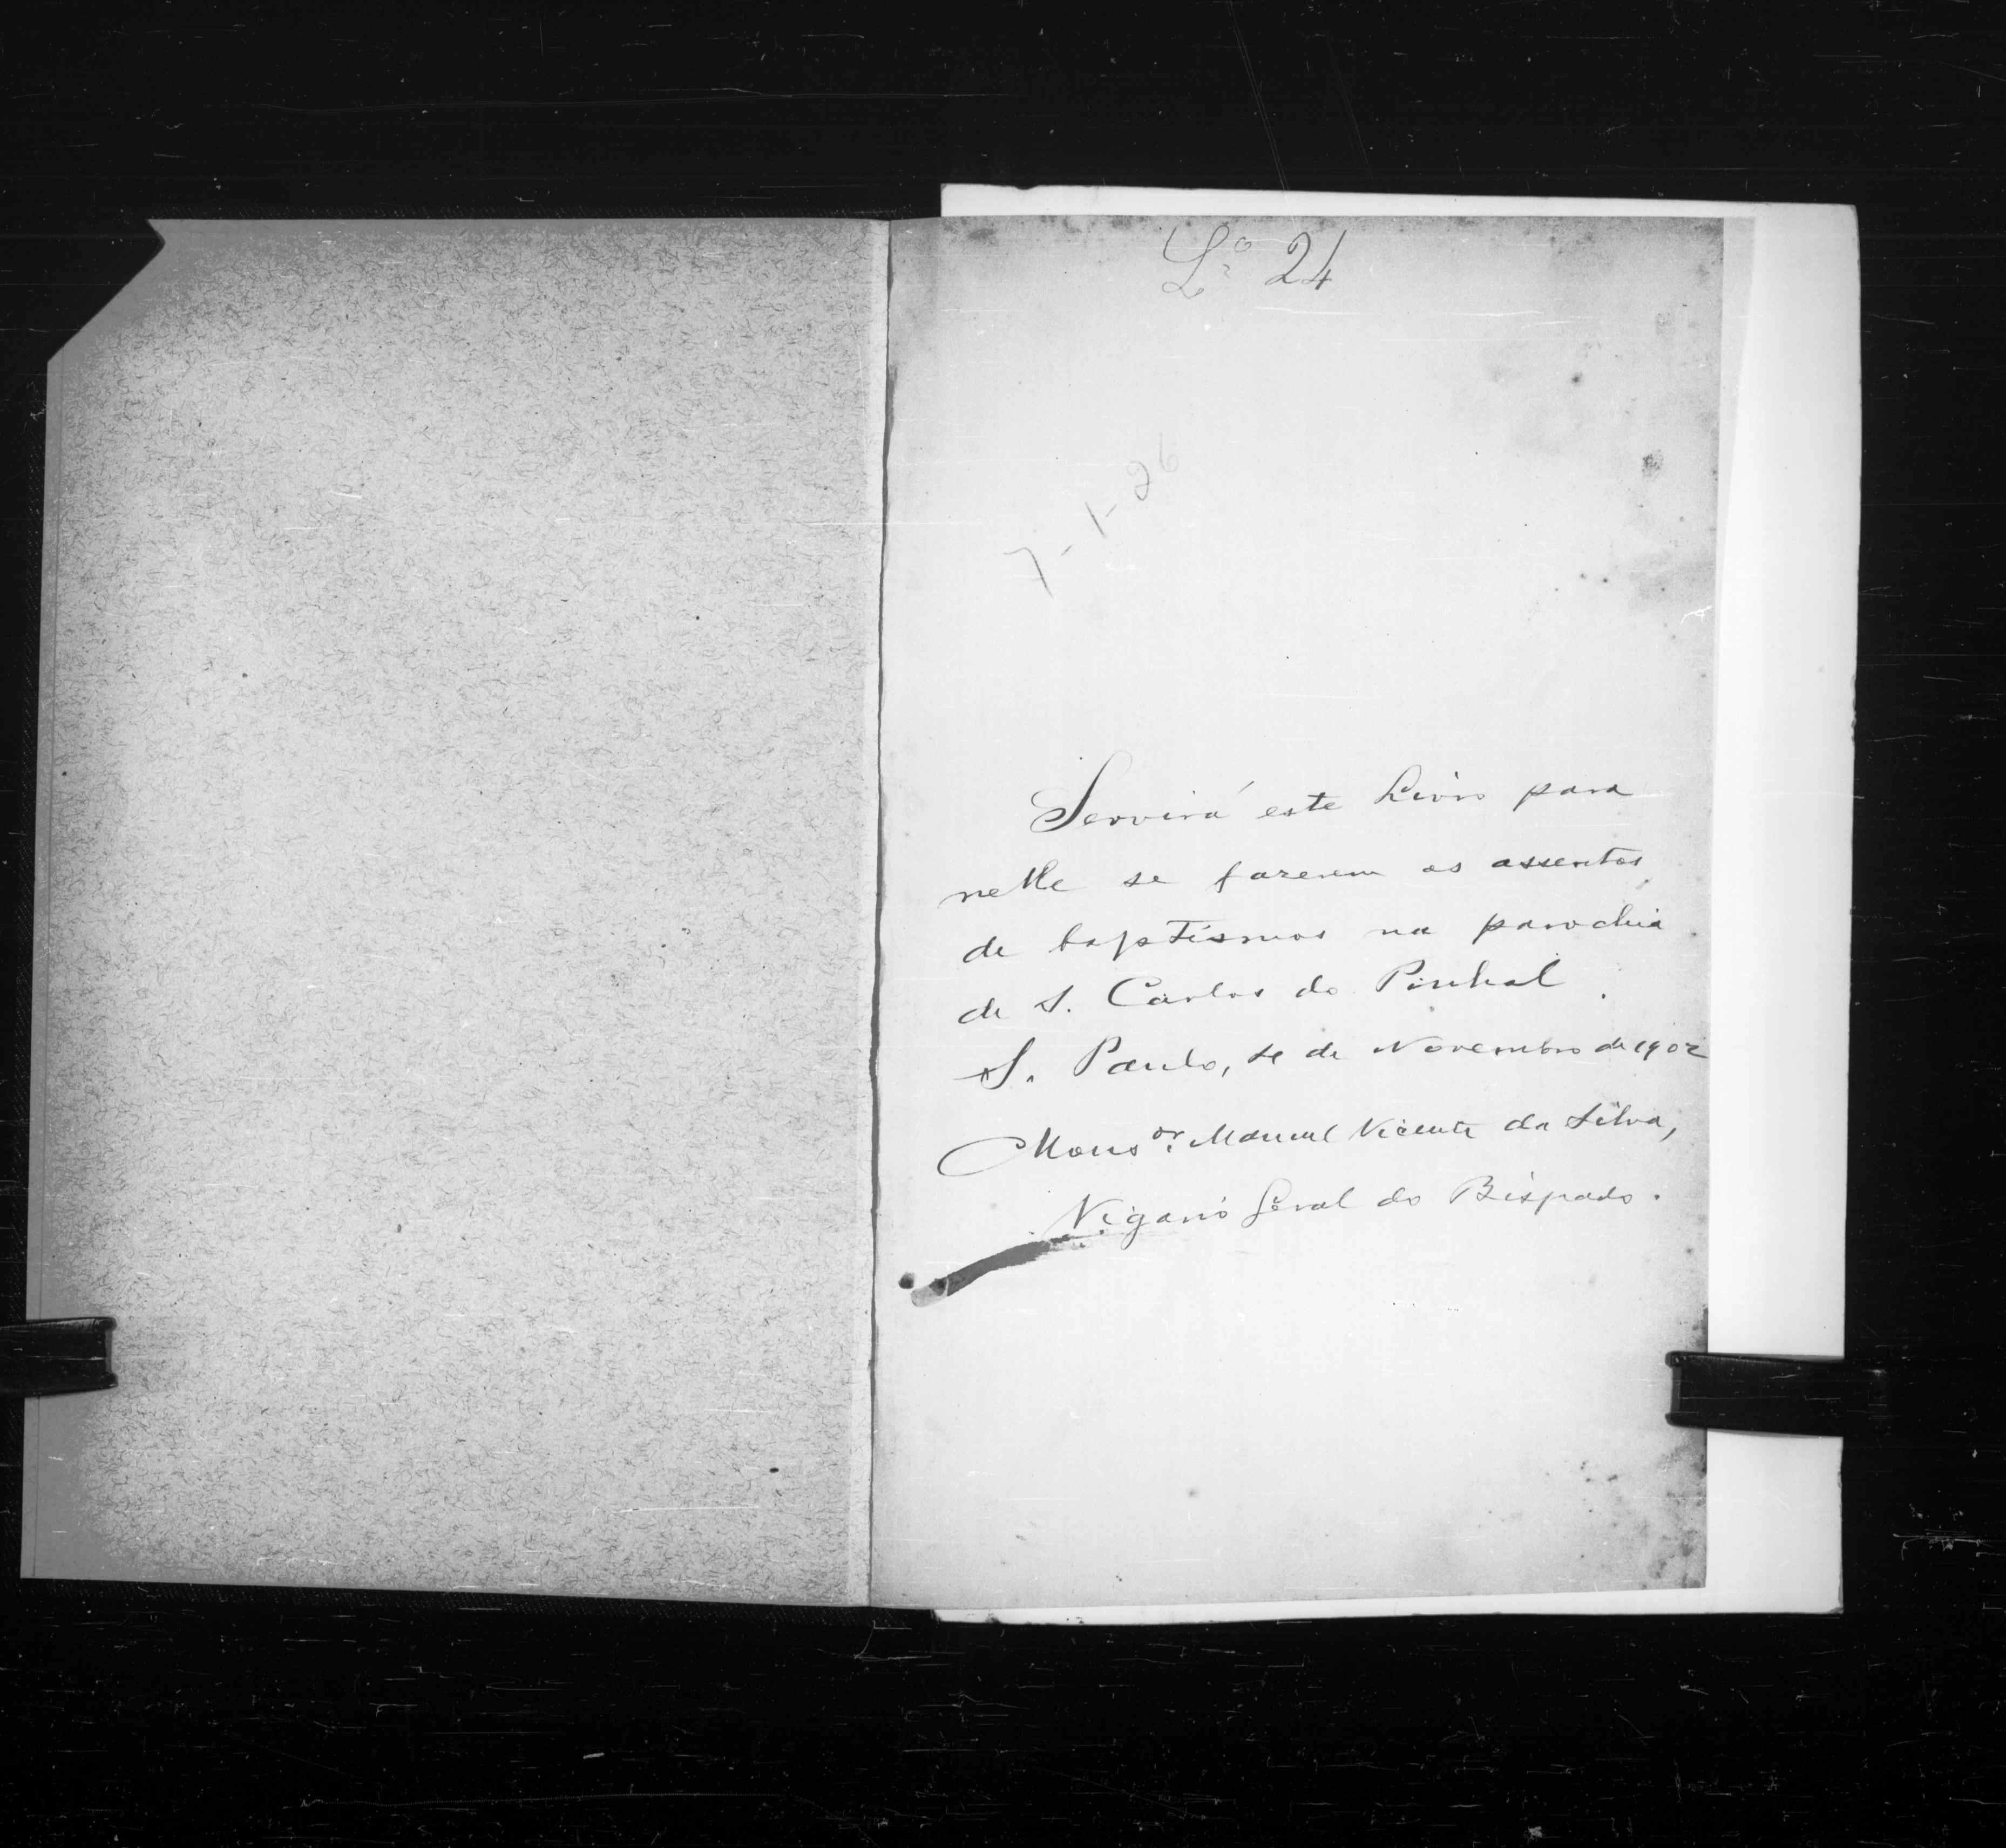 L.o 24
7-1-26
Servirá este Livro para
nelle se fazerem os assentos
de baptismos na parochia
de S. Carlos do Pinhal.
S. Paulo, de Novembro de 1902
Mons.or Manuel Vicente da Silva,
Vigario Geral do Bispado.